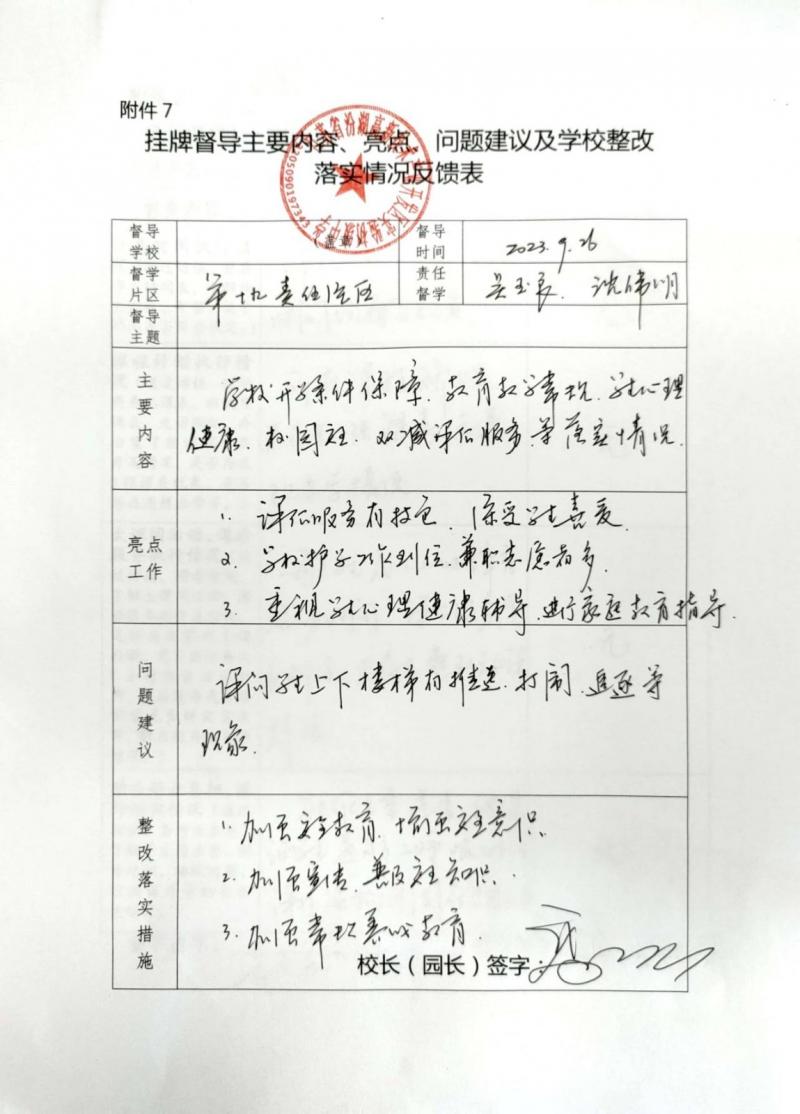 附件7
挂牌督导主要内容、亮点、问题建议及学校整改
落实情况反馈表
督导学校
(盖章)
督导时间
2023.9.26
督学片区
第十九责任片区
责任督学
吴玉良、沈伟明
督导主题
主要内容
学校开学条件保障、教育教学常规、学生心理
健康、校园安全、双减课后服务等落实情况.
亮点工作
1. 课后服务有特色、深受学生喜爱.
2. 学校护学工作到位、兼职志愿者多.
3. 重视学生心理健康辅导、进行家庭教育指导.
问题建议
课间学生上下楼梯有推搡、打闹、追逐等
现象.
整改落实措施
1. 加强安全教育、增强安全意识.
2. 加强宣传、普及安全知识.
3. 加强常规养成教育.
校长（园长）签字：